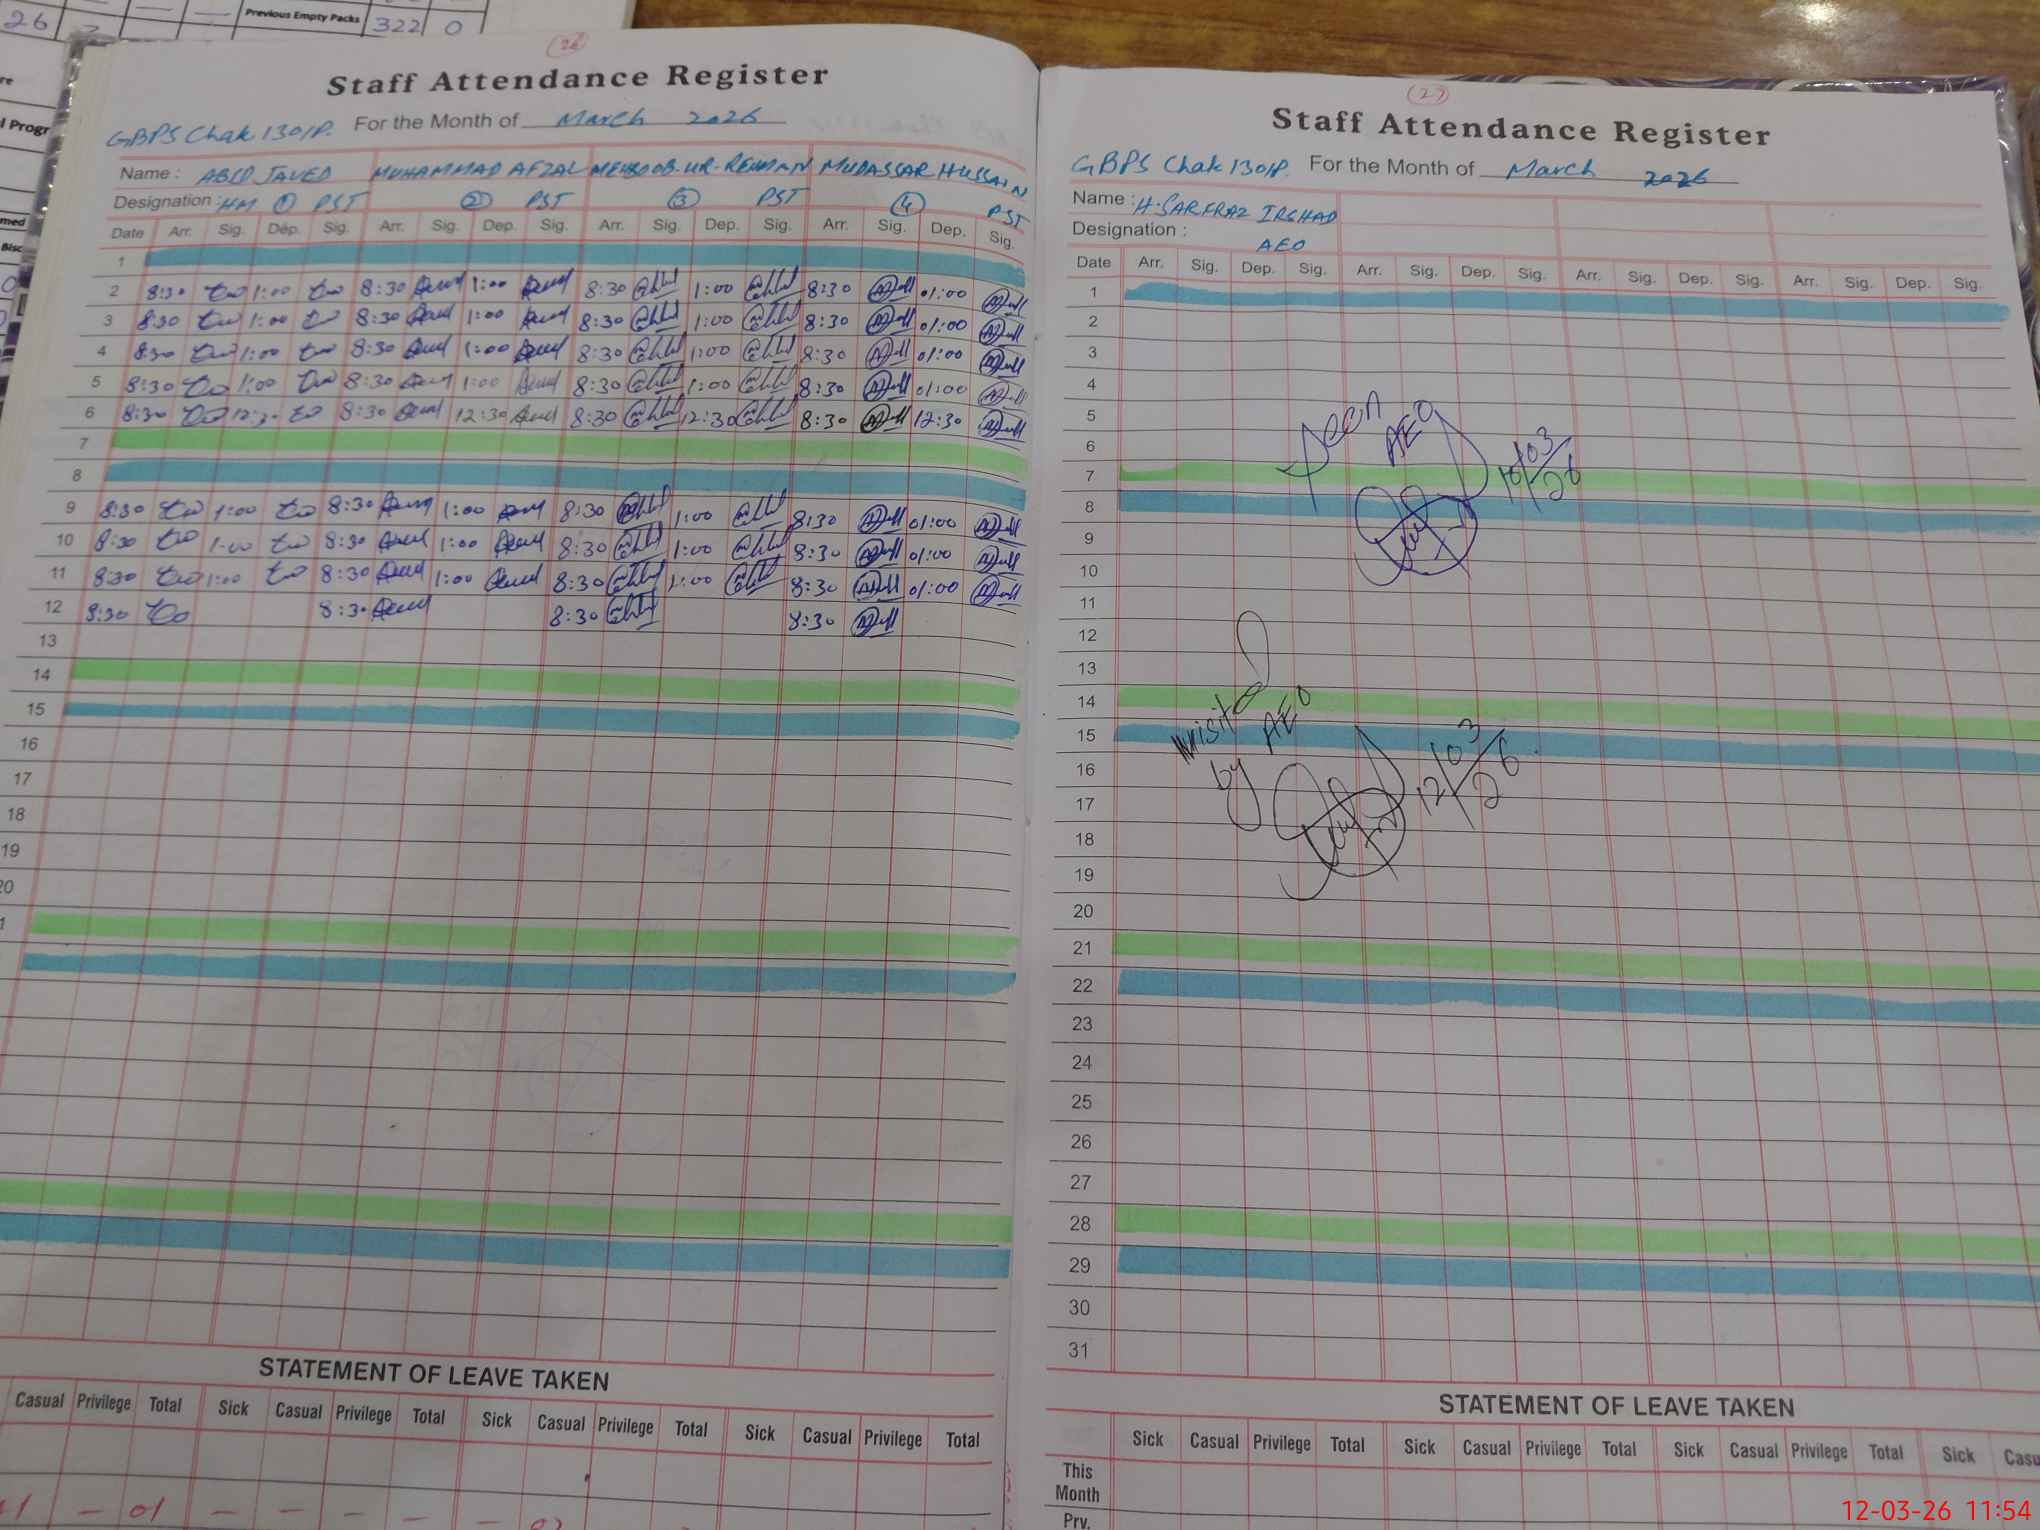 26 Previous Empty Packs 322 0
26
Staff Attendance Register
GBPS Chak 130/P. For the Month of March 2026
Name : ABID JAVED MUHAMMAD AFZAL MEHBOOB-UR-REHMAN MUDASSAR HUSSAIN
Designation : HM 1 PST 2 PST 3 PST 4 PST
Date Arr. Sig. Dep. Sig. Arr. Sig. Dep. Sig. Arr. Sig. Dep. Sig. Arr. Sig. Dep. Sig.
1
2 8:30 1:00 8:30 1:00 8:30 1:00 8:30 01:00
3 8:30 1:00 8:30 1:00 8:30 1:00 8:30 01:00
4 8:30 1:00 8:30 1:00 8:30 1:00 8:30 01:00
5 8:30 1:00 8:30 1:00 8:30 1:00 8:30 01:00
6 8:30 12:30 8:30 12:30 8:30 12:30 8:30 12:30
7
8
9 8:30 1:00 8:30 1:00 8:30 1:00 8:30 01:00
10 8:30 1:00 8:30 1:00 8:30 1:00 8:30 01:00
11 8:30 1:00 8:30 1:00 8:30 1:00 8:30 01:00
12 8:30 8:30 8:30 8:30
13
14
15
16
17
18
19
20
STATEMENT OF LEAVE TAKEN
Casual Privilege Total Sick Casual Privilege Total Sick Casual Privilege Total Sick Casual Privilege Total
— 01 — — — — —
27
Staff Attendance Register
GBPS Chak 130/P. For the Month of March 2026
Name : H. SARFRAZ IRSHAD
Designation : AEO
Date Arr. Sig. Dep. Sig. Arr. Sig. Dep. Sig. Arr. Sig. Dep. Sig. Arr. Sig. Dep. Sig.
1
2
3
4
5
Seen AEO
6
7
10/03/26
8
9
10
11
12
13
14
visited by AEO
15
12/03/26
16
17
18
19
20
21
22
23
24
25
26
27
28
29
30
31
STATEMENT OF LEAVE TAKEN
Sick Casual Privilege Total Sick Casual Privilege Total Sick Casual Privilege Total Sick
This Month
Prv.
12-03-26 11:54